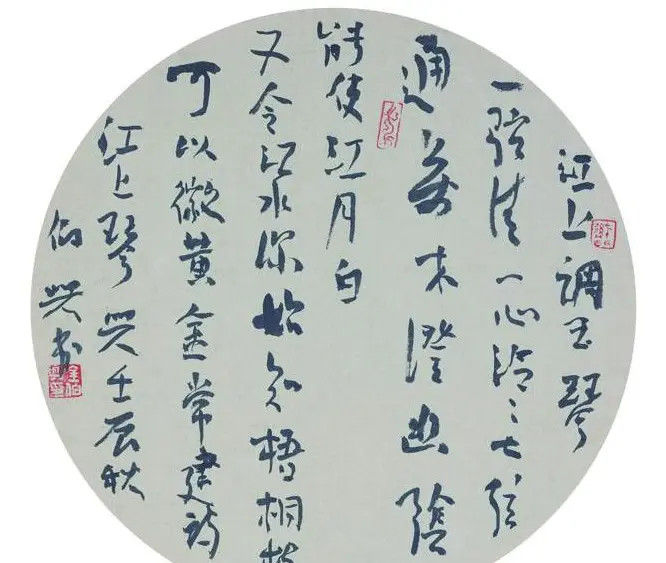 江上調玉琴
一弦清一心泠〻七弦
遍萬木澄幽陰
能使江月白
又令江水深始知梧桐枝
可以徽黄金常建詩
江上琴兴壬辰秋
伯兴书